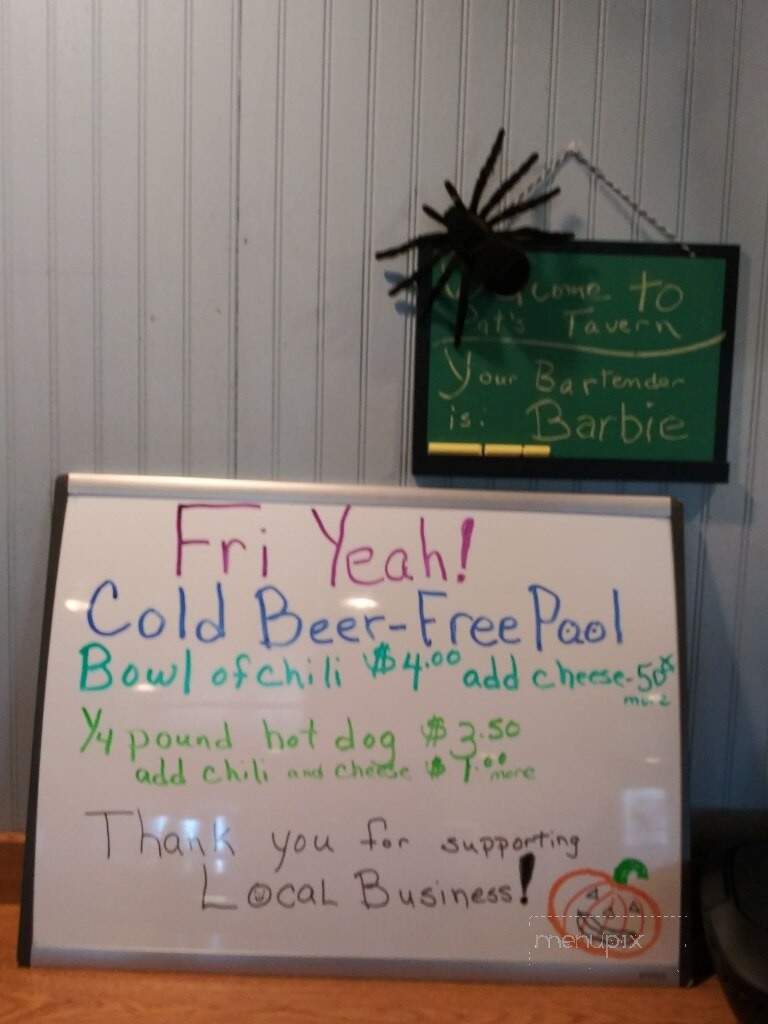 come to
Pat's Tavern
Your Bartender
is: Barbie
Fri Yeah!
Cold Beer-Free Pool
Bowl of chili $4.00 add cheese-50¢
more
1/4 pound hot dog $3.50
add chili and cheese $1.00 more
Thank you for supporting
Local Business!
menupix